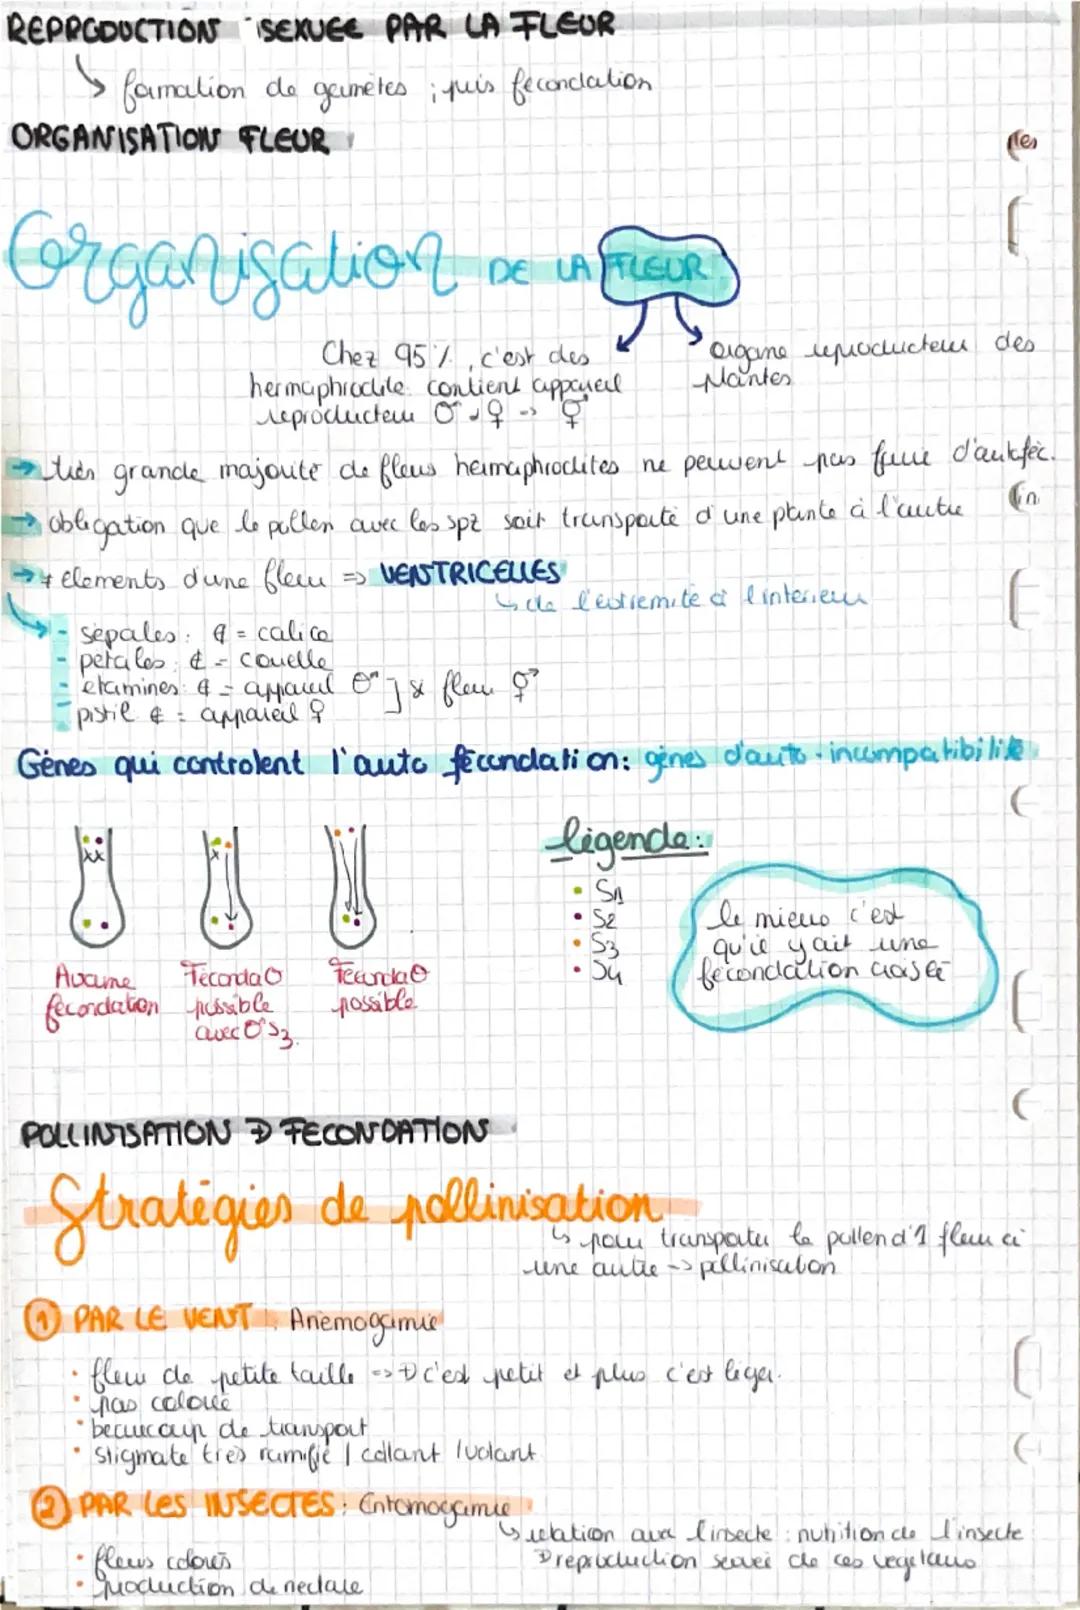 REPRODUCTION SEXUEE PAR LA FLEUR
↳ formation de gamètes ; puis fécondation
ORGANISATION FLEUR
Organisation DE LA FLEUR
Chez 95 %, c'est des
hermaphrodite contient appareil
reproducteur ♂ ♀ -> ⚥
organe reproducteur des
plantes
→ très grande majorité de fleurs hermaphrodites ne peuvent pas faire d'autoféc.
→ obligation que le pollen avec les spz soit transporté d'une plante à l'autre
→ 4 elements d'une fleur => VENTRICELLES
↳ de l'extremité à l'interieur
- sépales : = calice
- petales : = corolle
- etamines : = appareil ♂
- pistil = appareil ♀
fleur ⚥
Gènes qui controlent l'auto fécondation: gènes d'auto-incompatibilité
légende:
• S1
• S2
• S3
• S4
le mieux c'est
qu'il y ait une
fécondation croisée
Aucune
fécondation
Fécondaᴼ
possible
avec ♂ S3.
Fécondaᴼ
possible
POLLINISATION → FECONDATION
Stratégies de pollinisation
↳ pour transporter le pollen d'1 fleur à
une autre -> pollinisation
① PAR LE VENT : Anémogamie
• fleur de petite taille => + c'est petit et plus c'est léger.
• pas coloré
• beaucoup de transport
• stigmate très ramifié / collant / volant
② PAR LES INSECTES : Entomogamie
↳ relation avec l'insecte : nutrition de l'insecte
reproduction sexuée de ces végétaux
• fleurs colorés
• production de nectare